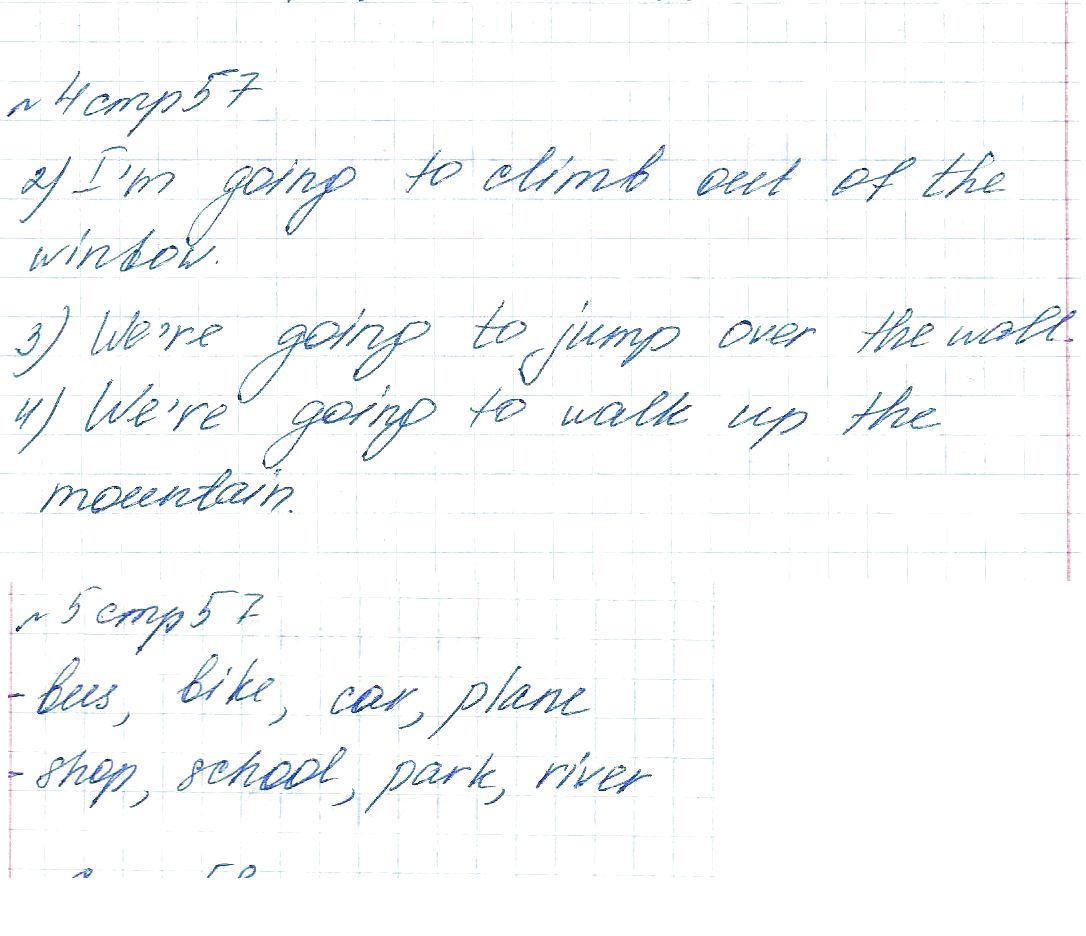 № 4 стр 57
2) I'm going to climb out of the
window.
3) We're going to jump over the wall.
4) We're going to walk up the
mountain.
№ 5 стр 57
- bus, bike, car, plane
- shop, school, park, river